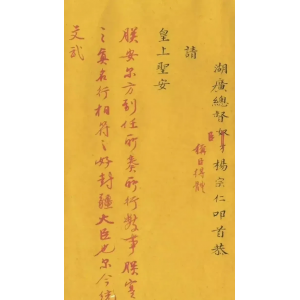 湖廣總督奴才楊宗仁叩首恭
臣
稱臣得體
請
皇上聖安
朕安尔方到任所奏所行數事朕實
之奏名行相符之好封疆大臣也尔今繕
文武